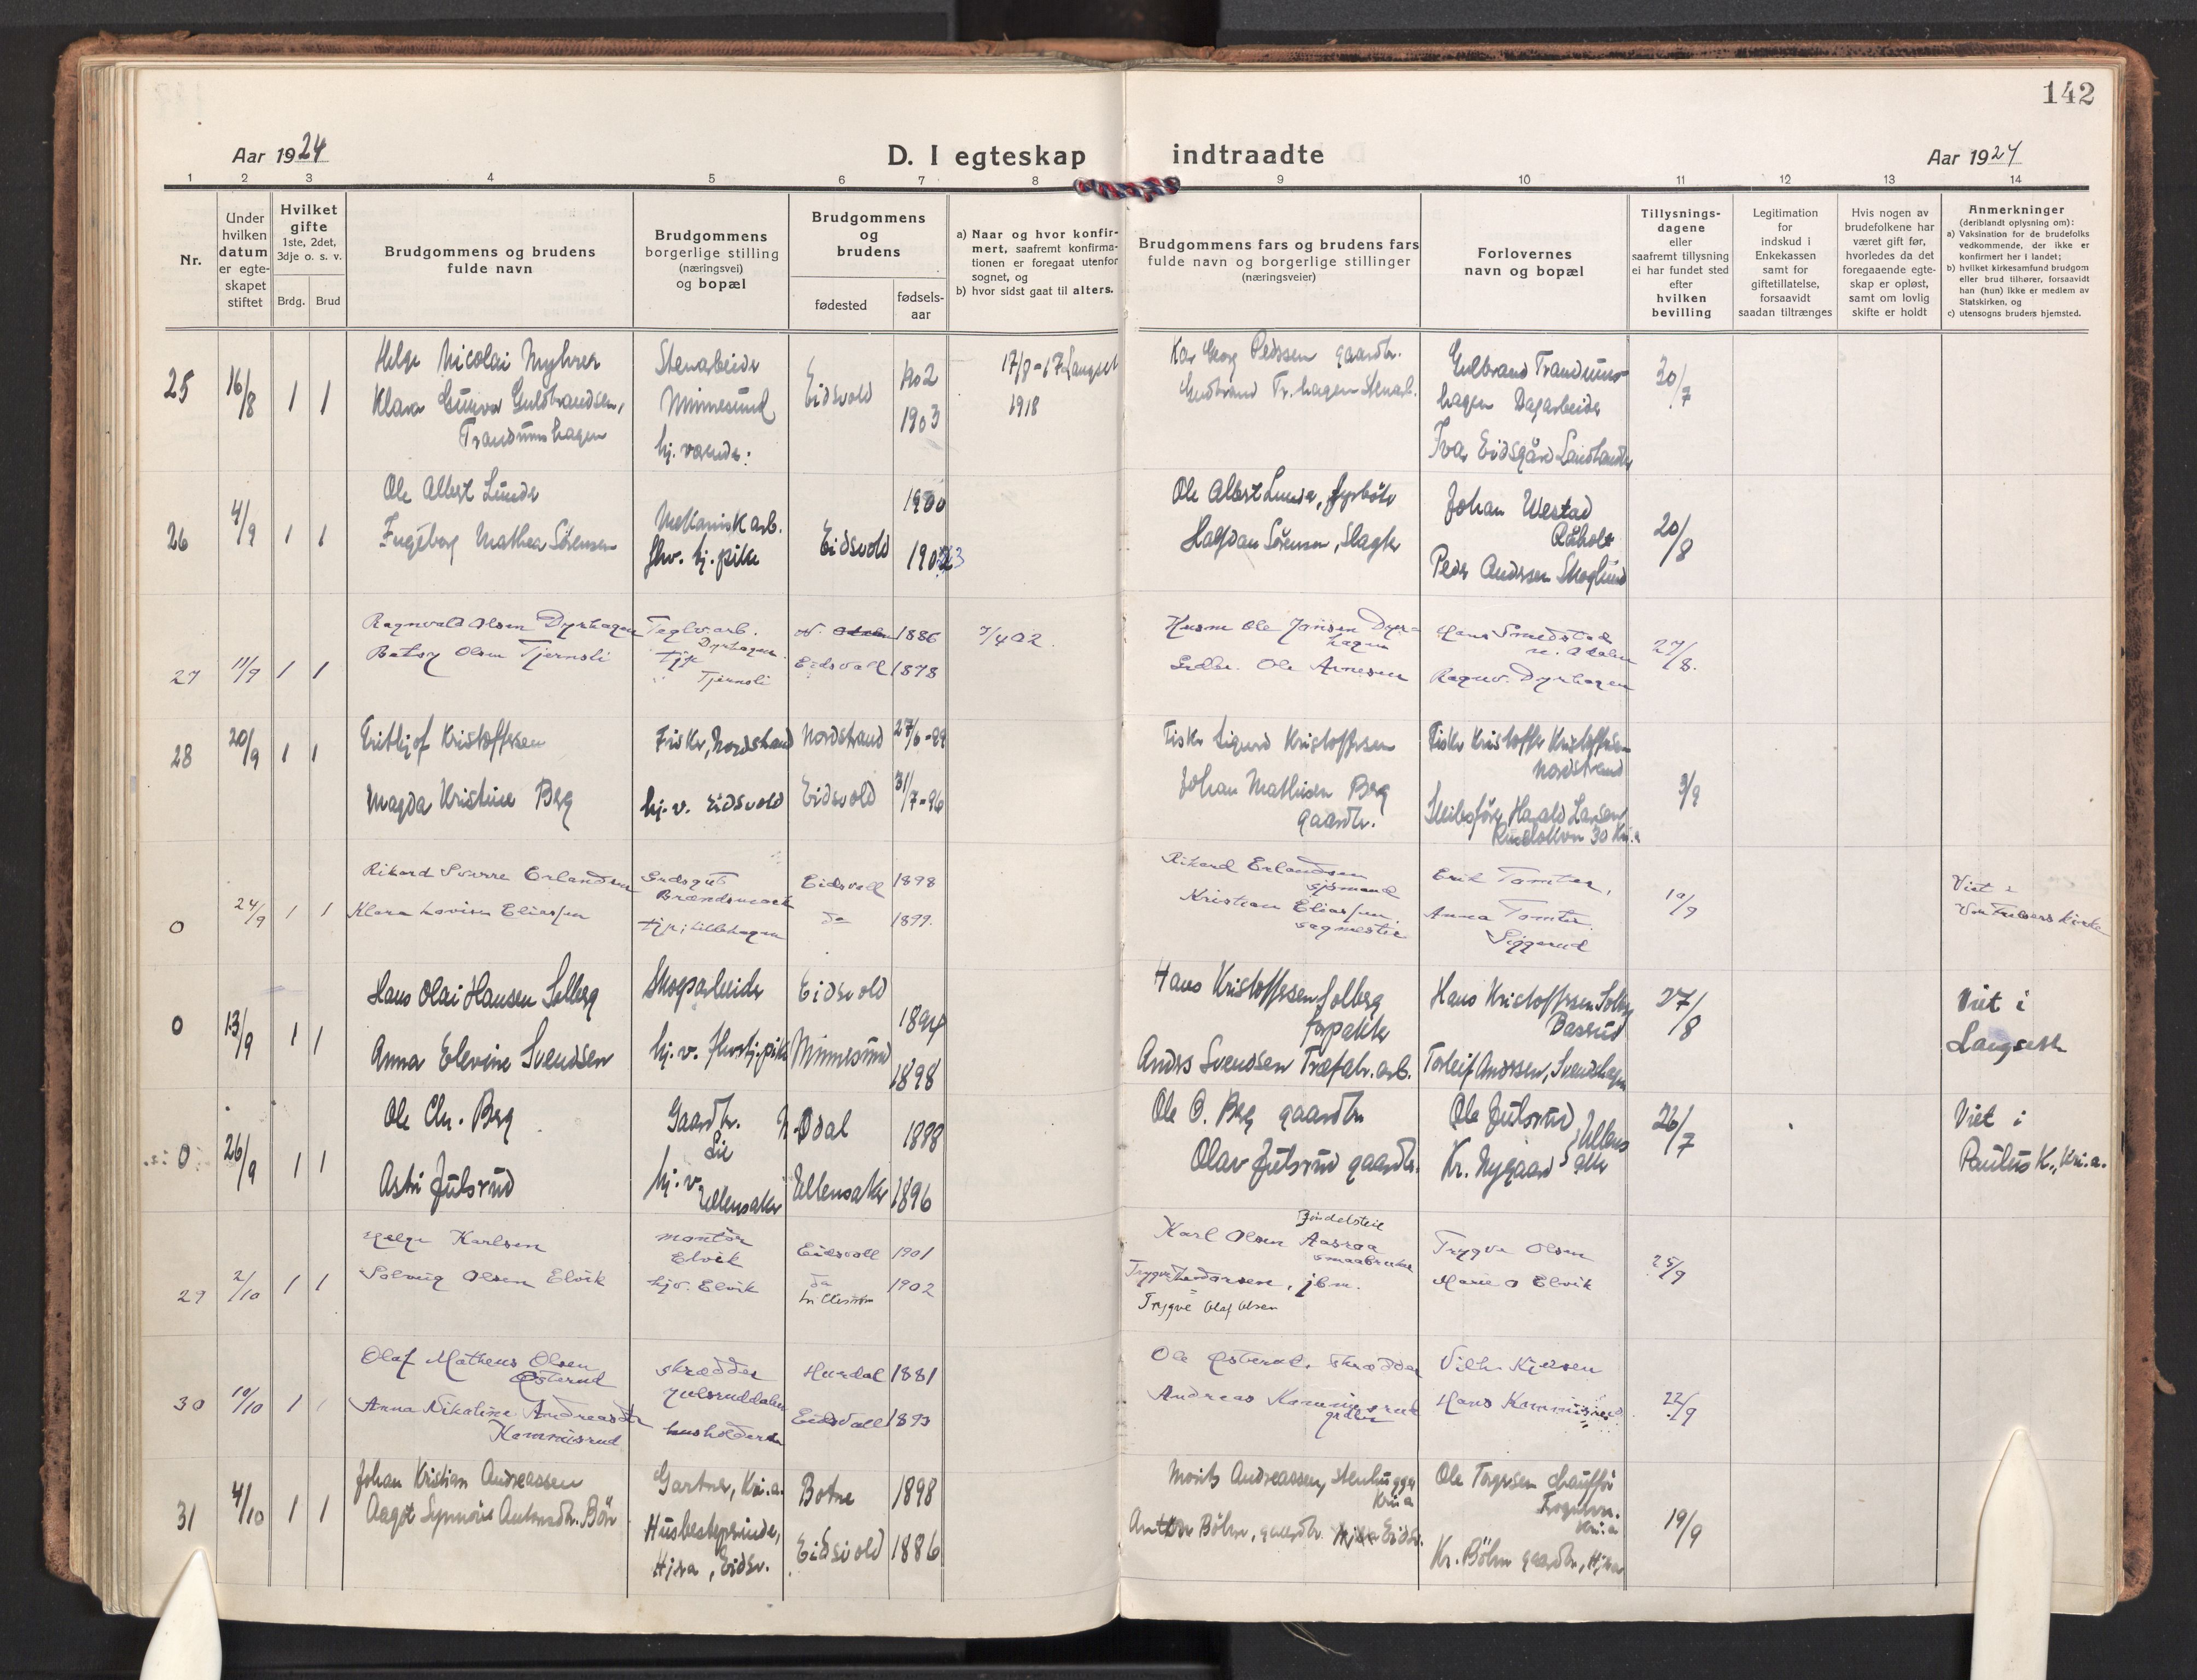 142
Aar 1924
D. I egteskap indtraadte
Aar 1924
1 2 3 4 5 6 7 8 9 10 11 12 13 14
Nr.
Under
hvilken
datum
er egte-
skapet
stiftet
Hvilket
gifte
1ste, 2det,
3dje o. s. v.
Brdg. Brud
Brudgommens og brudens
fulde navn
Brudgommens
borgerlige stilling
(næringsvei)
og bopæl
Brudgommens
og
brudens
fødested
fødsels-
aar
a) Naar og hvor konfir-
mert, saafremt konfirma-
tionen er foregaat utenfor
sognet, og
b) hvor sidst gaat til alters.
Brudgommens fars og brudens fars
fulde navn og borgerlige stillinger
(næringsveier)
Forlovernes
navn og bopæl
Tillysnings-
dagene
eller
saafremt tillysning
ei har fundet sted
efter
hvilken
bevilling
Legitimation
for
indskud i
Enkekassen
samt for
giftetillatelse,
forsaavidt
saadan tiltrænges
Hvis nogen av
brudefolkene har
været gift før,
hvorledes da det
foregaaende egte-
skap er opløst,
samt om lovlig
skifte er holdt
Anmerkninger
(deriblandt oplysning om):
a) Vaksination for de brudefolks
vedkommende, der ikke er
konfirmert her i landet;
b) hvilket kirkesamfund brudgom
eller brud tilhører, forsaavidt
han (hun) ikke er medlem av
Statskirken, og
c) utensogns bruders hjemsted.
25 16/8 1 1
Helge Nicolai Myhrer
Klara Gunva Guldbrandsen,
Trandumshagen
Stenarbeider
Minnesund
hj. værende:
Eidsvold
1902
1903
17/8-17 Langset
1918
Kar Georg Pedersen gaardbr.
Gudbrand Tr.hagen Stenarb.
Gulbrand Trandums-
hagen Dagarbeider
Ivar Eidsgård Landhandler
30/7
26 4/9 1 1
Ole Albert Lunde
Ingeborg Mathea Sörensen
Mekanisk arb.
fhv. hj. pike
Eidsvold
1900
1903
Ole Albert Lunde, fyrböter
Halfdan Sörensen, Slagter
Johan Westad
Råholt
Peder Andersen Skoglund
20/8
27 11/9 1 1
Ragnvald Olsen Dyrhagen
Betsy Olsen Tjernsli
Teglv.arb.
Dyrhagen
Tjernsli
N. Odalen 1886
Eidsvoll 1878
7/4 02.
Husm Ole Jansen Dyr-
hagen
Gulbr. Ole Arnesen
Hans Smedstad
N. Odalen
Ragnv. Dyrhagen
27/8.
28 20/9 1 1
Frithjof Kristoffersen
Magda Kristine Berg
Fisker, Nordstrand
hj. v. Eidsvold
Nordstrand
Eidsvold
27/6-89
31/7-96
Fisker Sigurd Kristoffersen
Johan Mathisen Berg
gaardbr.
Fisker Kristoffer Kristoffersen
Nordstrand
Harald Larsen
30 Kr.a
3/9
0 24/9 1 1
Rikard Sverre Erlandsen
Klara Lovise Eliassen
Godsgut
Brændsmork
tj. p; Lillehagen
Eidsvoll 1898
do 1899.
Rikard Erlandsen
sjömand
Kristian Eliassen,
sagmester
Erik Tomter,
Anna Tomter.
Siggerud
10/9
Viet i
Vor Frelsers kirke
0 13/9 1 1
Hans Olai Hansen Solberg
Anna Elevine Svendsen
Skogarbeider
hj. v. fhv tj.pike
Eidsvold
Minnesund
1894
1898
Hans Kristoffersen Solberg
forpakter
Anders Svendsen Træfabr. arb.
Hans Kristoffersen Solberg
Basrud
Torleif Andersen, Svendshagen
27/8
Viet i
Langseth
0 26/9 1 1
Ole Chr. Berg
Astri Julsrud
Gaardbr.
Lie
hj. v.
Ullensaker
N. Odal
Ullensaker
1898
1896
Ole O. Berg gaardbr
Olav Julsrud gaardbr.
Ole Julsrud
Kr. Nygaard
Ullens
aker
26/7
Viet i
Paulus K., Kri.a.
29 2/10 1 1
Helge Karlsen
Solveig Olsen Elvik
montör
Elvik
hjv. Elvik
Eidsvoll 1901
do 1902
Lilleström
Karl Olsen Aasroa
smaabruker
Trygve Ludvrsen, jbm.
Trygve Olaf Olsen
Trygve Olsen
Marie O Elvik
25/9
30 10/10 1 1
Olaf Matheus Olsen
Østerud
Anna Nikoline Andreasdtr
Kommisrud
skrædder
Julsruddalen
husholderske
Hurdal 1881
Eidsvoll 1893
Ole Østerud, skrædder
Andreas Kommisrud
grdbr.
Vilh. Kjelsen
Hans Kommisrud
22/9
31 4/10 1 1
Johan Kristian Andreassen
Aagot Synnöve Antonsdtr. Böhn
Gartner, Kri.a.
Husbestyrerinde,
Hjera, Eidsv.
Botne
Eidsvold
1898
1886
Morits Andreassen, Stenhugger
Kri.a
Anton Böhn, gaardbr. Hjera Eidsv.
Ole Torgersen chaufför
Kri.a
Kr. Böhn gaardbr., Hjera
19/9